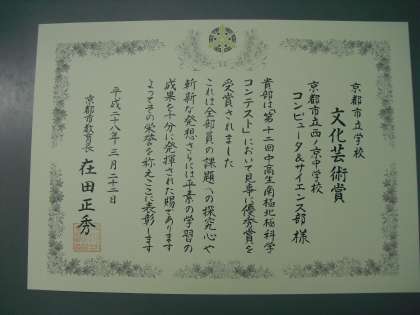 京都市立学校
文化芸術賞
京都市立西ノ京中学校
コンピュータ&サイエンス部 様
貴部は「第十二回中高生南極北極科学
コンテスト」において見事に優秀賞を
受賞されました
これは全部員の課題への探究心や
斬新な発想さらには平素の学習の
成果を十分に発揮された賜であります
よってその栄誉を称えここに表彰します
平成二十八年三月二十二日
京都市教育長 在田正秀